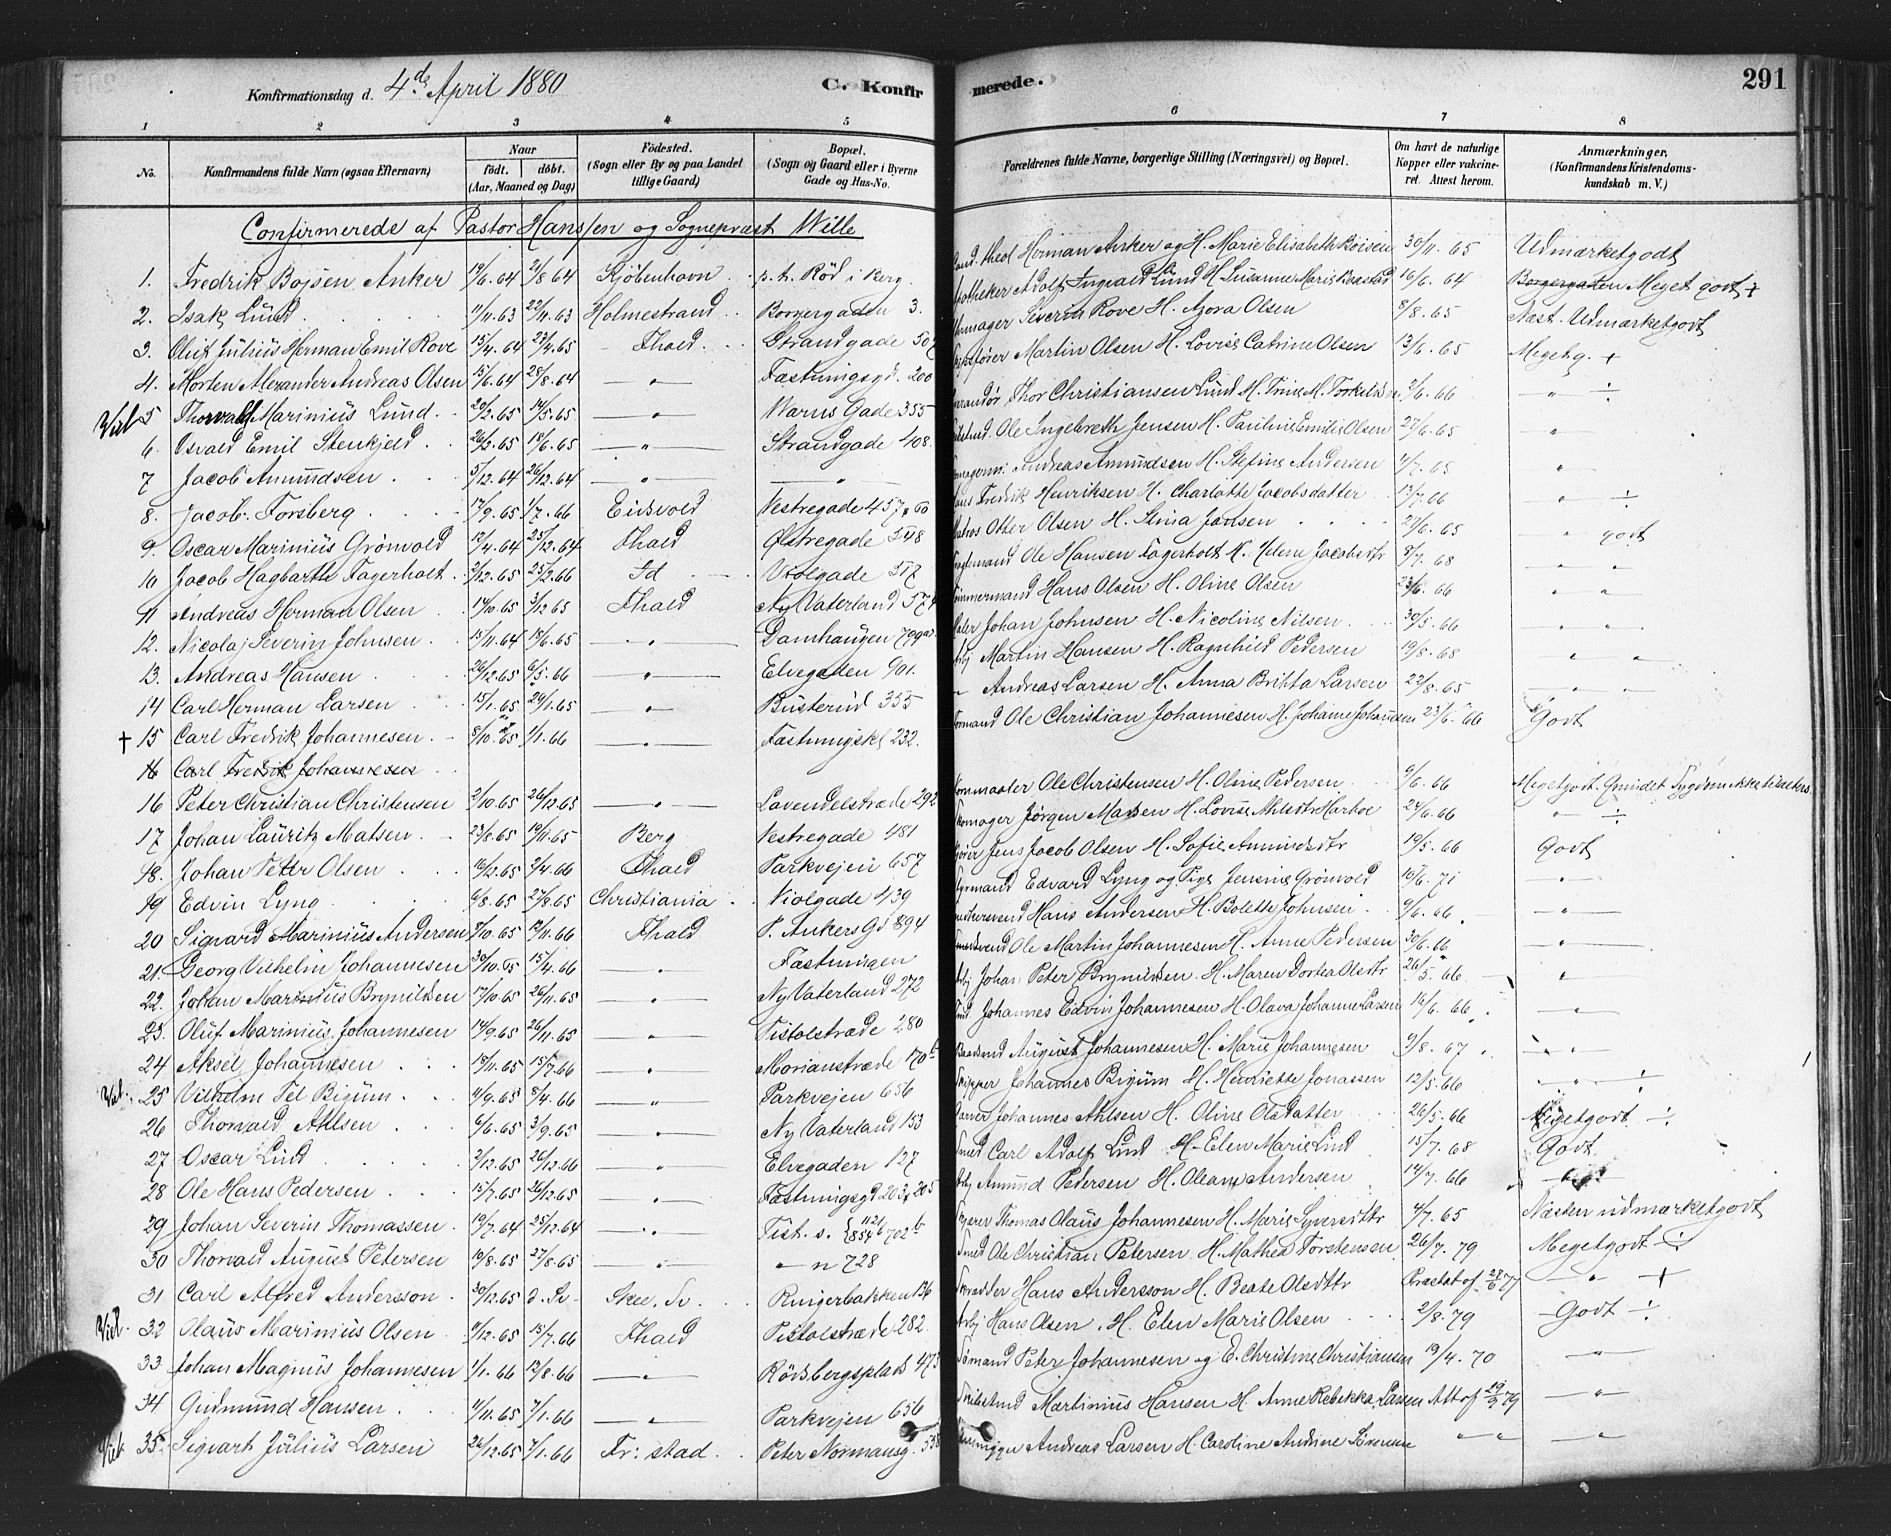 Konfirmationsdag d. 4de April 1880
C. Konfirmerede.
291
1 2 3 4 5 6 7 8
No.
Konfirmandens fulde Navn (ogsaa Efternavn)
Naar født. døbt. (Aar, Maaned og Dag)
Födested. (Sogn eller By og paa Landet tillige Gaard)
Bopæl. (Sogn og Gaard eller i Byerne Gade og Hus-No.
Forældrenes fulde Navne, borgerlige Stilling (Næringsvei) og Bopæl.
Om havt de naturlige Kopper eller vakcineret. Attest herom.
Anmærkninger. (Konfirmandens Kristendomskundskab m. V.)
Confirmerede af Pastor Hanssen og Sogneprest Wille
1. Fredrik Bojsen Anker 19/6.64 2/8 64 Kjöbenhavn p. t. Röd i Berg. theol Herman Anker og H. Marie Elisabeth Böisen 30/11. 65 Udmærketgodt
2. Isak Lund 11/11.63 22/11.63 Holmestrand Borgergaden 3. Apotheker Adolf Ingvald Lund H. Susanne Marie 16/6. 64 Meget godt +
3. Oluf Julius Herman Emil Rove 15/4.64 23/4.65 Fhald Strandgade Severin Rove H. Azora Olsen 8/8. 65 Næst. Udmærketgodt
4. Morten Alexander Andreas Olsen 15/6.64 28/8.64 " Fæstningsgd. 200 Martin Olsen H. Lovise Catrine Olsen 13/6. 65 Megetg. +
5 Thorvald Marinius Lund 20/2.65 14/5.65 " Warns Gade 355 Thor Christiansen Lund H. Trine M. Torkelsen 2/6. 66 " ÷
6. Osvald Emil Stenkjeld 26/2.65 18/6.65 " Strandgade 408. Ole Ingebreth Jensen H. Pauline Emilie Olsen 27/6.65 "
7 Jacob Amundsen 5/12.64 26/12.64 " " Andreas Amundsen H. Stefine Andersen 4/7. 65 "
8. Jacob Forsberg 17/9.65 1/7.66 Eidsvold Vestregade 457 Fredrik Henriksen H. Charlotte Jacobsdatter 13/7 66 " ÷
9. Oscar Marinius Grönvold 12/4.64 25/12.64 Fhald Østregade 548 Otter Olsen H. Stina Jansen 27/6. 65 " godt
10 Jacob Hagbarth Fagerholt 2/12.65 25/2.66 Id Violgade Ole Hansen Fagerholt H. Helene Jacobsdtr 8/7. 68 " "
11 Andreas Herman Olsen 14/10.65 3/12 65 Fhald Ny Vaterland 574 Tömmermand Hans Olsen H. Oline Olsen 23/6. 66 " "
12. Nicolaj Severin Johnsen 15/11.64 18/6.65 " Damhaugen Maler Johan Johnsen H. Nicoline Nilsen 30/5. 66 " "
13. Andreas Hansen 26/12.65 6/5.66 " Elvegaden 901. Arbj Martin Hansen H. Ragnhild Pedersen 19/8. 68 " "
14 Carl Herman Larsen 15/1.65 24/1.65 " Busterud 355 " Andreas Larsen H. Anna Britta Larsen 22/8.65 " "
† 15 Carl Fredrik Johannesen 8/10.65 1/1.66 " Fæstningsk 232. Ole Christian Johannesen H. Johanne Johannesen 23/6.66 Godt
16 Carl Fredrik Johannesen
16 Peter Christian Christensen 2/10.65 26/12.65 " Lavendelstræde 292 Ole Christensen H. Oline Pedersen 6/6. 66 Megetgodt.
17 Johan Lauritz Matsen 23/8.65 19/11.65 Berg Vestregade 481 Skomager Jørgen Matsen H. Lovise Harboe 24/6.66 " ÷
18. Johan Peter Olsen 16/12.65 2/4.66 Fhald Parkvejen 657 Jens Jacob Olsen H. Sofie Amundsdtr 19/5. 66 Godt
19 Edvin Lyng 6/8.65 27/8.65 Christiania Violgade 439 Edvard Lyng og Pige Jensine Grönvold 15/6. 71 "
20 Sigvard Marinius Andersen 7/10.65 12/11.66 Fhald P. Ankers Gd 894 Hans Andersen H. Bolette Johnsen 6/6. 66 "
21. Georg Vilhelm Johannesen 30/10.65 15/4.66 " Fæstningen Ole Martin Johannesen H. Anne Pedersen 30/6. 66 "
22. Johan Martinius Brynildsen 17/10.65 26/11.65 " Ny Vaterland 272 Arbj Johan Peter Brynildsen. H. Maren Dortea Olsdtr 26/5. 66 "
23. Oluf Marinius Johannesen 14/9.65 26/11.65 " Pistolstræde 280 Johannes Edvin Johannesen H. Olava Johanne Larsen 16/6. 66 "
24 Aksel Johannesen 18/11.65 15/7.66 " Morianstræde 170b August Johannesen H. Marie Johannesen 9/8. 67 "
25 Vilhelm Fel Bigum 11/9.65 8/4.66 " Parkvejen 656 Skipper Johannes Bigum H. Henriette Jonassen 12/5.66 " ÷
26 Thorvald Ahlsen 6/6.65 3/9.65 " Ny Vaterland 153 Johannes Ahlsen H. Oline Olsdatter 26/5. 66 Megetgodt ÷
27 Oscar Lund 2/12.65 26/12.66 " Elvegaden 127 Smed Carl Adolf Lund H. Elen Marie Lund 15/7. 68 Godt
28 Ole Hans Pedersen 15/7.65 26/12.65 " Fæstningsgd 203, 205 Arbj Amund Pedersen H. Oleane Andersen 14/7. 66
29 Johan Severin Thomassen 19/7.64 25/12.64 " Tist. s. 702b Thomas Olaus Johannesen H. Marie Syversdtr 4/7. 65 Næsten udmærketgodt
30 Thorvald August Petersen 19/8.65 27/8.65 " " 728 Smed Ole Christian Petersen H. Mathea Torstensen 26/7. 79 Megetgodt ÷
31 Carl Alfred Andersson 30/12.65 d. Sv Skee. Sv. Ruigerbakken 136 Skrædder Hans Andersson H. Beate Olsdttr Præstat af " +
32 Olaus Marinius Olsen 11/12.65 15/7.66 Fhald Pistolstræde 282 Arbj Hans Olsen H. Elen Marie Olsen 2/8. 79 Godt ÷
33 Johan Magnus Johannesen 1/1.66 12/8.66 " Rödsbergsplads 473 Sömand Peter Johannesen og E. Christine Christiansen 19/4. 70 "
34 Gudmund Hansen 11/11.65 7/1.66 " Parkvejen 656 Martinius Hansen H. Anne Rebekka Larsen Att af 29/2 79 "
35. Sigvart Julius Larsen 26/12.65 7/1.66 Fr: stad Peter Normansg. Andreas Larsen H. Caroline Andrine Sörensen " " "